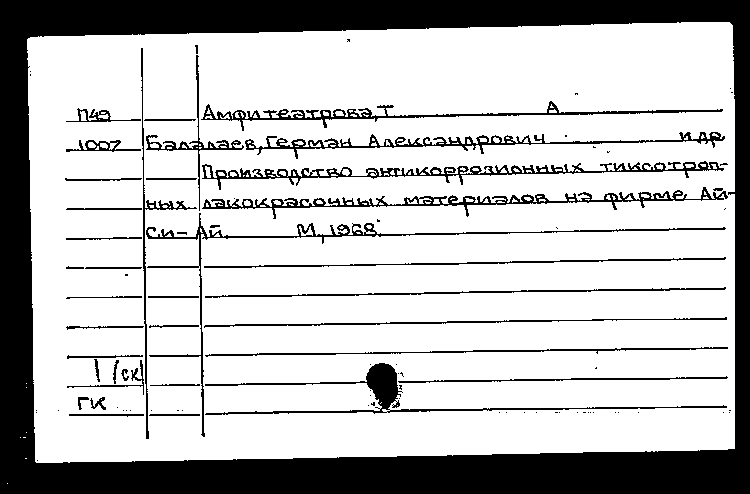 П49 Амфитеатрова, Т А
1007 Балалаев, Герман Александрович и др
Производство антикоррозионных тиксотроп-
ных лакокрасочных материалов на фирме Ай-
Си-Ай. М., 1968.
1 (ск)
ГК